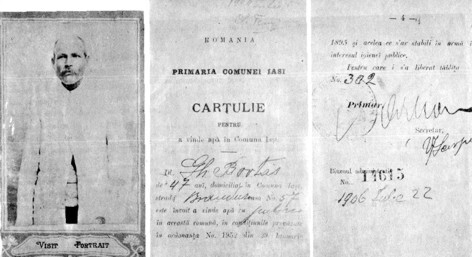 VISIT PORTRAIT
ROMANIA
PRIMARIA COMUNEI IASI
CARTULIE
PENTRU
a vinde apă în Comuna Iași
Gh Bortaș
de 47 ani, domiciliat în Comuna Iași
strada No. 57
este învoit a vinde apă în
în această comună, în condițiunile prevăzute
în ordonanța No. 1957 din 30 Ianuarie
— 4 —
1895 și acelea ce s'ar stabili în urmă în
interesul igienei publice.
Pentru care i s'a liberat tăblița
No. 302
Primar,
Secretar,
Biuroul administrativ
No. 11615
1906 Iulie 22